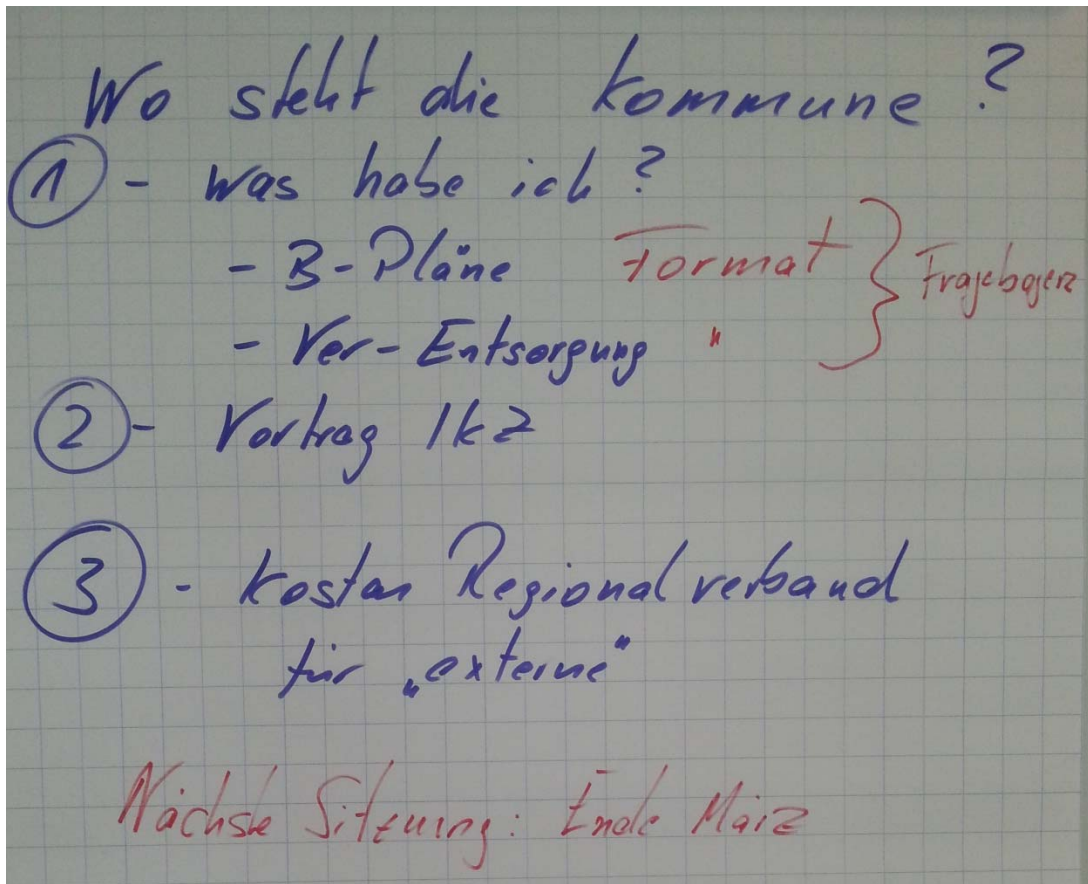 Wo steht die Kommune?
① - was habe ich?
- B-Pläne Format } Fragebogen
- Ver-Entsorgung "
② - Vortrag IKZ
③ - Kosten Regionalverband
für „externe"
Nächste Sitzung: Ende März